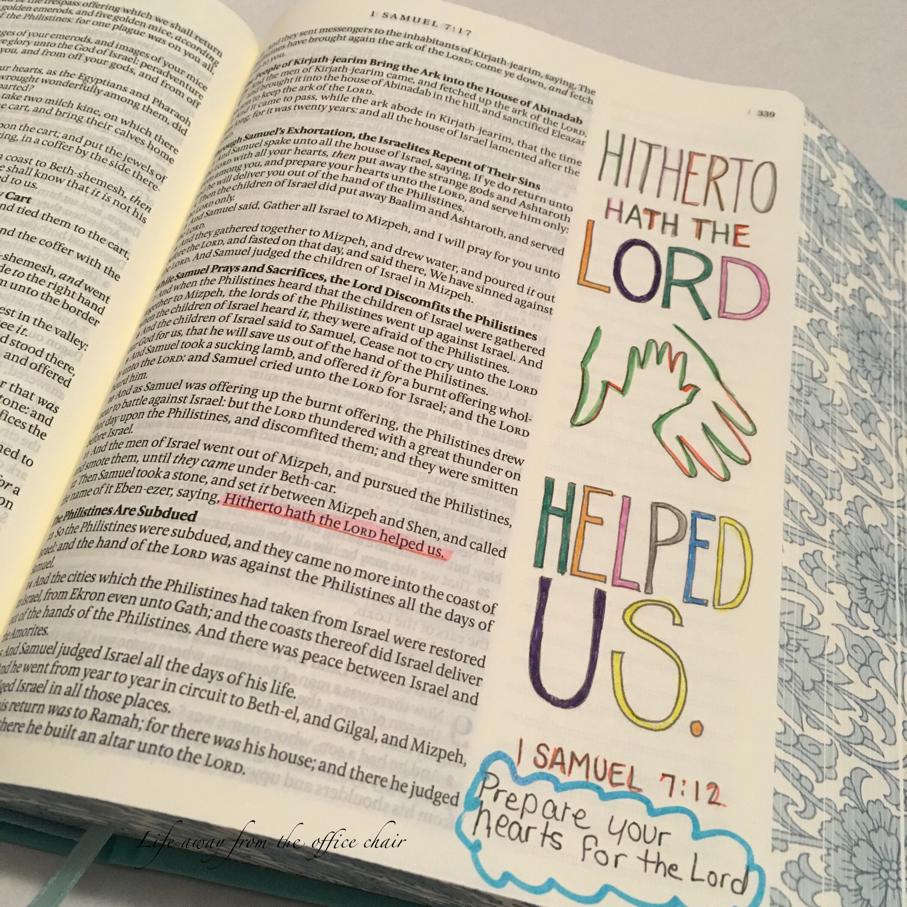 the trespass offering which we shall return
golden emerods, and five golden mice, according
the Philistines: for one plague was on you all,
ges of your emerods, and images of your mice
e glory unto the God of Israel: peradventure
you, and from off your gods, and from off
ur hearts, as the Egyptians and Pharaoh
wrought wonderfully among them, did
parted?
take two milch kine, on which there
the cart, and bring their calves home
pon the cart, and put the jewels of
ring, in a coffer by the side there
coast to Beth-shemesh, then
shall know that it is not his
d to us.
Cart
nd tied them to the cart,
and the coffer with the
-shemesh, and went
de to the right hand
m unto the border
est in the valley:
see it.
d stood there,
and offered
r that was
tone: and
fices the
ned to
for a
on
1 SAMUEL 7:17
339
And they sent messengers to the inhabitants of Kirjath-jearim, saying, The
have brought again the ark of the LORD; come ye down, and fetch
you.
People of Kirjath-jearim Bring the Ark into the House of Abinadab
and the men of Kirjath-jearim came, and fetched up the ark of the LORD,
brought it into the house of Abinadab in the hill, and sanctified Eleazar
to keep the ark of the LORD.
it came to pass, while the ark abode in Kirjath-jearim, that the time
long; for it was twenty years: and all the house of Israel lamented after the
Through Samuel's Exhortation, the Israelites Repent of Their Sins
And Samuel spake unto all the house of Israel, saying, If ye do return unto
with all your hearts, then put away the strange gods and Ashtaroth
among you, and prepare your hearts unto the LORD, and serve him only:
he will deliver you out of the hand of the Philistines.
Then the children of Israel did put away Baalim and Ashtaroth, and served
only.
And Samuel said, Gather all Israel to Mizpeh, and I will pray for you unto
And they gathered together to Mizpeh, and drew water, and poured it out
before the LORD, and fasted on that day, and said there, We have sinned against
the LORD. And Samuel judged the children of Israel in Mizpeh.
While Samuel Prays and Sacrifices, the Lord Discomfits the Philistines
And when the Philistines heard that the children of Israel were gathered
together to Mizpeh, the lords of the Philistines went up against Israel. And
the children of Israel heard it, they were afraid of the Philistines.
And the children of Israel said to Samuel, Cease not to cry unto the LORD
God for us, that he will save us out of the hand of the Philistines.
And Samuel took a sucking lamb, and offered it for a burnt offering whol-
unto the LORD: and Samuel cried unto the LORD for Israel; and the LORD
heard him.
And as Samuel was offering up the burnt offering, the Philistines drew
near to battle against Israel: but the LORD thundered with a great thunder on
day upon the Philistines, and discomfited them; and they were smitten
before Israel.
And the men of Israel went out of Mizpeh, and pursued the Philistines,
and smote them, until they came under Beth-car.
Then Samuel took a stone, and set it between Mizpeh and Shen, and called
the name of it Eben-ezer, saying, Hitherto hath the LORD helped us.
The Philistines Are Subdued
So the Philistines were subdued, and they came no more into the coast of
Israel: and the hand of the LORD was against the Philistines all the days of
Samuel.
And the cities which the Philistines had taken from Israel were restored
Israel, from Ekron even unto Gath; and the coasts thereof did Israel deliver
out of the hands of the Philistines. And there was peace between Israel and
the Amorites.
And Samuel judged Israel all the days of his life.
And he went from year to year in circuit to Beth-el, and Gilgal, and Mizpeh,
judged Israel in all those places.
his return was to Ramah; for there was his house; and there he judged
there he built an altar unto the LORD.
HITHERTO
HATH THE
LORD
HELPED
US.
1 SAMUEL 7:12
Prepare your
hearts for the Lord
Life away from the office chair